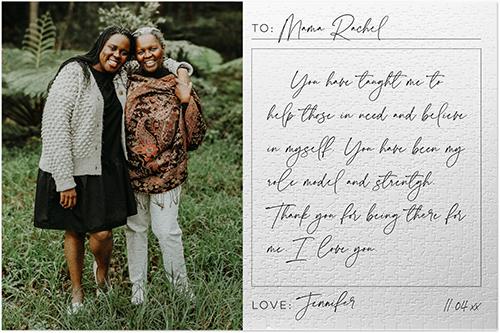 TO: Mama Rachel
You have taught me to
help those in need and believe
in myself. You have been my
role model and strentgh.
Thank you for being there for
me. I love you
LOVE: Jennifer 11.04.xx